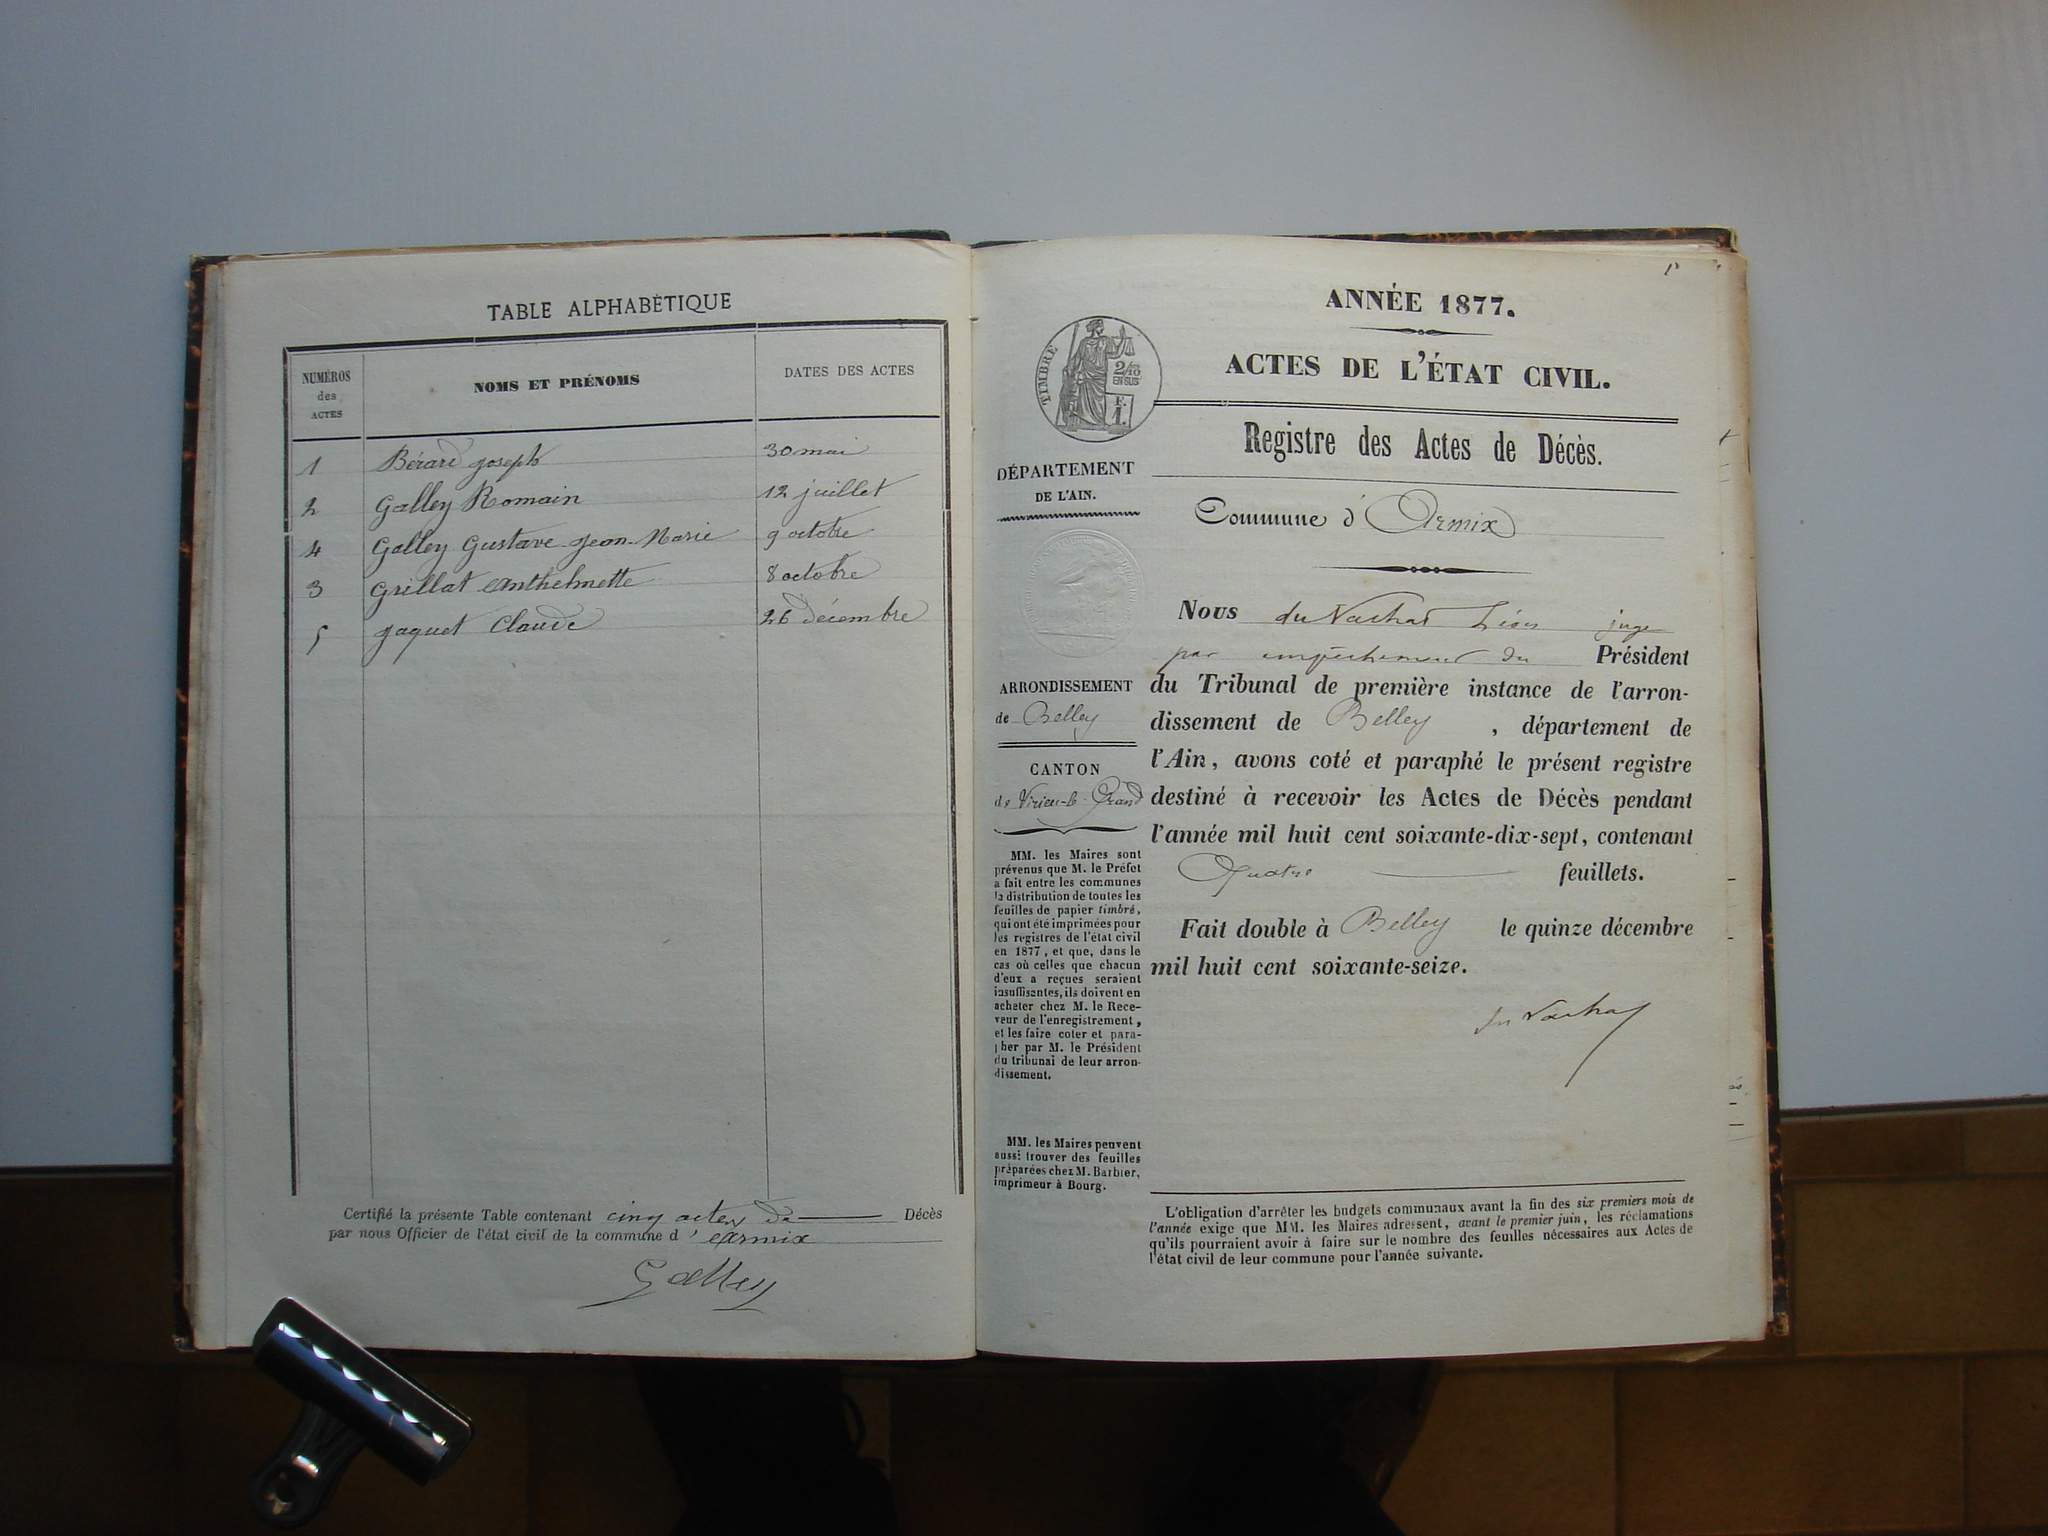 TABLE ALPHABÉTIQUE
NUMÉROS des ACTES
NOMS ET PRÉNOMS
DATES DES ACTES
1 Bérard Joseph 30 mai
2 Galley Romain 12 juillet
4 Galley Gustave Jean-Marie 9 octobre
3 Grillat Anthelmette 8 octobre
5 Jaquet Claude 26 décembre
Certifié la présente Table contenant cinq actes de Décès
par nous Officier de l'état civil de la commune d'Armix
Galley
ANNÉE 1877.
ACTES DE L'ÉTAT CIVIL.
TIMBRE
2/10
EN SUS
F.
1.
Registre des Actes de Décès.
DÉPARTEMENT
DE L'AIN.
Commune d'Armix
ARRONDISSEMENT
de Belley
CANTON
de Virieu-le-Grand
MM. les Maires sont
prévenus que M. le Préfet
a fait entre les communes
la distribution de toutes les
feuilles de papier timbré,
qui ont été imprimées pour
les registres de l'état civil
en 1877, et que, dans le
cas où celles que chacun
d'eux a reçues seraient
insuffisantes, ils doivent en
acheter chez M. le Rece-
veur de l'enregistrement,
et les faire coter et para-
pher par M. le Président
du tribunal de leur arron-
dissement.
MM. les Maires peuvent
aussi trouver des feuilles
préparées chez M. Barbier,
imprimeur à Bourg.
Nous du Vachat Léon juge
par empêchement du Président
du Tribunal de première instance de l'arron-
dissement de Belley, département de
l'Ain, avons coté et paraphé le présent registre
destiné à recevoir les Actes de Décès pendant
l'année mil huit cent soixante-dix-sept, contenant
Quatre feuillets.
Fait double à Belley le quinze décembre
mil huit cent soixante-seize.
du Vachat
L'obligation d'arrêter les budgets communaux avant la fin des six premiers mois de
l'année exige que MM. les Maires adressent, avant le premier juin, les réclamations
qu'ils pourraient avoir à faire sur le nombre des feuilles nécessaires aux Actes de
l'état civil de leur commune pour l'année suivante.